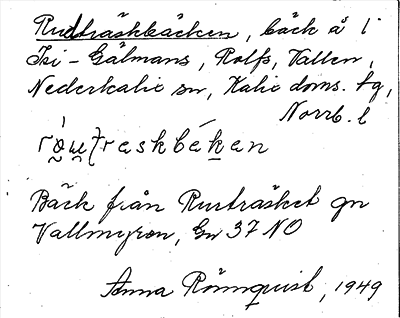 Rudträskbäcken, bäck å l
Tsi-Gälmans, Rolfs, Vallen,
Nederkalix sn, Kalix doms. tg,
Norrb. l
Bäck från Rurträsket gm
Vallmyren, Gu 37 NO
Anna Rönnquist, 1949